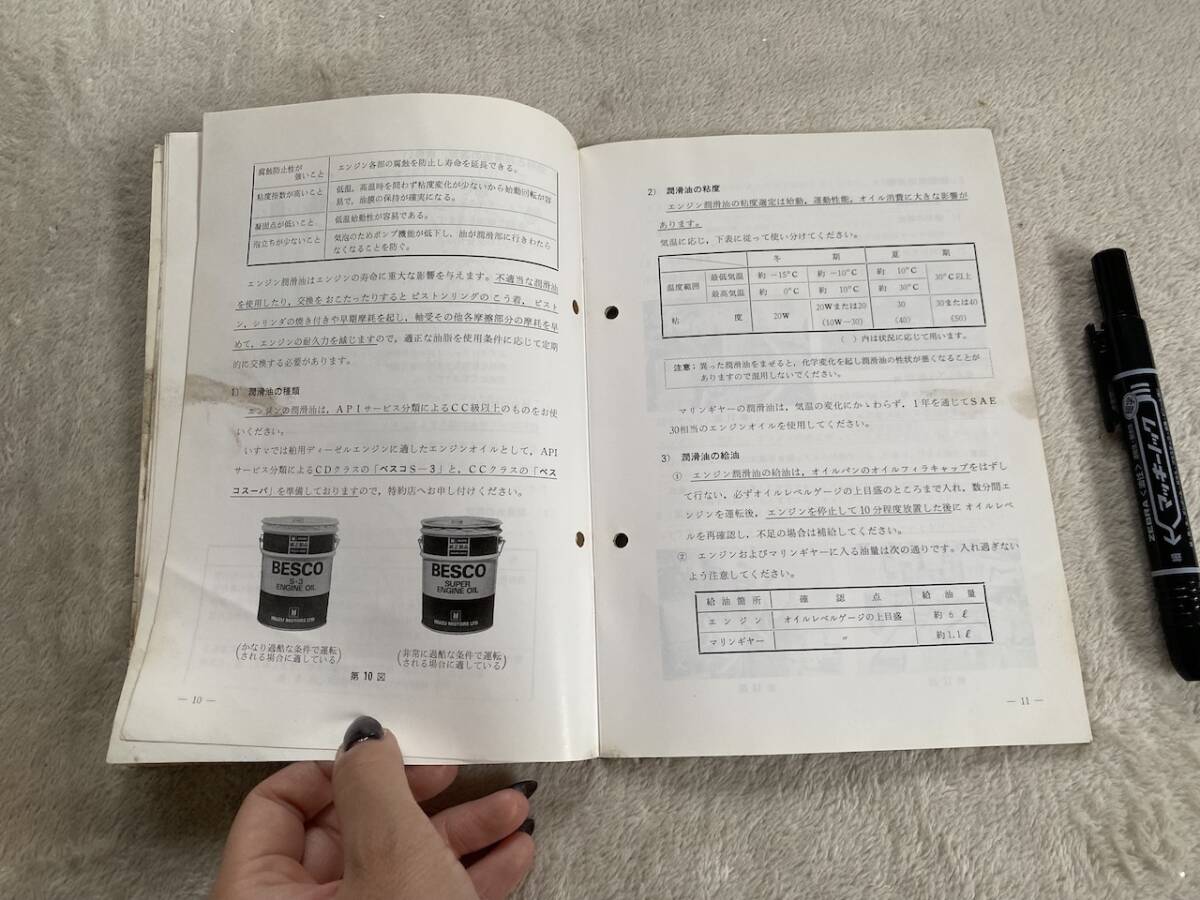 腐蝕防止性が
強いこと
エンジン各部の腐蝕を防止し寿命を延長できる。
粘度指数が高いこと
低温，高温時を問わず粘度変化が少ないから始動回転が容
易で，油膜の保持が確実になる。
凝固点が低いこと
低温始動性が容易である。
泡立ちが少ないこと
気泡のためポンプ機能が低下し，油が潤滑部に行きわたら
なくなることを防ぐ。
エンジン潤滑油はエンジンの寿命に重大な影響を与えます。不適当な潤滑油
を使用したり，交換をおこたったりするとピストンリングのこう着，ピスト
ン，シリンダの焼き付きや早期摩耗を起し，軸受その他各摩擦部分の摩耗を早
めて，エンジンの耐久力を減じますので，適正な油脂を使用条件に応じて定期
的に交換する必要があります。
1) 潤滑油の種類
エンジンの潤滑油は，APIサービス分類によるCC級以上のものをお使
いください。
いすゞでは舶用ディーゼルエンジンに適したエンジンオイルとして，API
サービス分類によるCDクラスの「ベスコS−3」と，CCクラスの「ベス
コスーパ」を準備しておりますので，特約店へお申し付けください。
BESCO
S-3
ENGINE OIL
ISUZU MOTORS LTD
BESCO
SUPER
ENGINE OIL
ISUZU MOTORS LTD
(かなり過酷な条件で運転
される場合に適している)
(非常に過酷な条件で運転
される場合に適している)
第10図
— 10 —
2) 潤滑油の粘度
エンジン潤滑油の粘度選定は始動，運動性能，オイル消費に大きな影響が
あります。
気温に応じ，下表に従って使い分けてください。
冬 期 夏 期
温度範囲 最低気温 約 −15°C 約 −10°C 約 10°C 30°C以上
最高気温 約 0°C 約 10°C 約 30°C
粘 度 20W 20Wまたは20 (10W−30) 30 (40) 30または40 (50)
( ) 内は状況に応じて用います。
注意：異った潤滑油をまぜると，化学変化を起し潤滑油の性状が悪くなることが
ありますので混用しないでください。
マリンギヤーの潤滑油は，気温の変化にかゝわらず，1年を通じてSAE
30相当のエンジンオイルを使用してください。
3) 潤滑油の給油
① エンジン潤滑油の給油は，オイルパンのオイルフィラキャップをはずし
て行ない，必ずオイルレベルゲージの上目盛のところまで入れ，数分間エ
ンジンを運転後，エンジンを停止して10分程度放置した後にオイルレベ
ルを再確認し，不足の場合は補給してください。
② エンジンおよびマリンギヤーに入る油量は次の通りです。入れ過ぎない
よう注意してください。
給油箇所 確 認 点 給 油 量
エ ン ジ ン オイルレベルゲージの上目盛 約 6 ℓ
マリンギヤー 〃 約1.1 ℓ
— 11 —
マッキー
ZEBRA